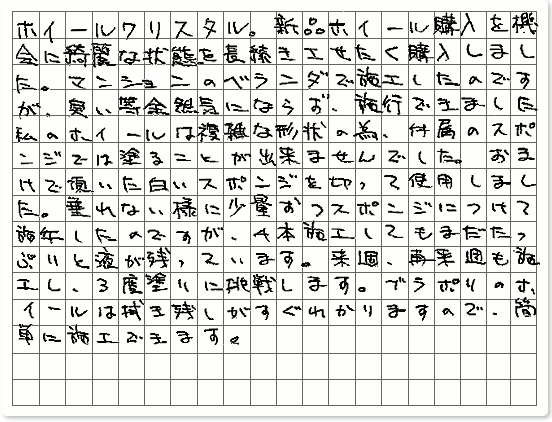 ホイールクリスタル。新品ホイール購入を機
会に綺麗な状態を長続きさせたく購入しまし
た。マンションのベランダで施工したのです
が、臭い等全然気にならず、施行できました
私のホイールは複雑な形状の為、付属のスポ
ンジでは塗ることが出来ませんでした。おま
けで頂いた白いスポンジを切って使用しまし
た。垂れない様に少量ずつスポンジにつけて
施工したのですが、4本施工してもまだたっ
ぷりと液が残っています。来週、再来週も施
工し、3度塗りに挑戦します。ブラポリのホ
イールは拭き残しがすぐわかりますので、簡
単に施工できます。